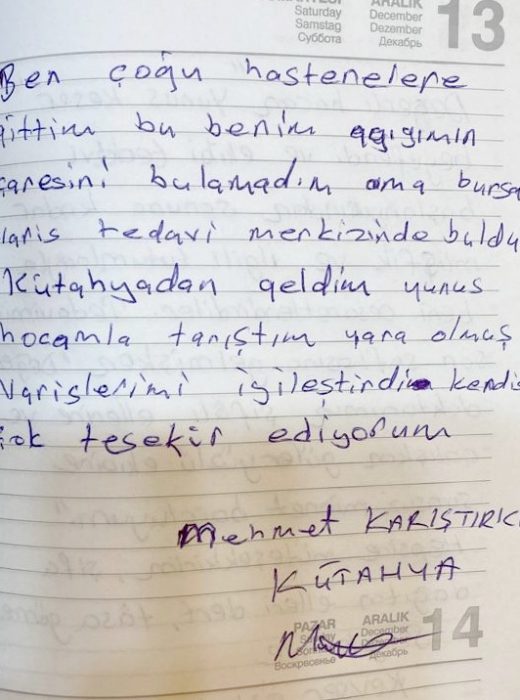 Saturday
Samstag
Суббота
ARALIK
December
Dezember
Декабрь
13
Ben çoğu hastenelere
gittim bu benim agıgımın
çaresini bulamadım ama bursa
laris tedavi merkizinde buldu
Kütahyadan geldim yunus
hocamla tanıştım yara olmuş
Varislerimi iyileştirdi kendis
çok teşekir ediyorum
Mehmet KARIŞTIRICI
KÜTAHYA
PAZAR
ARALIK
December
Декабрь
Воскресенье
14